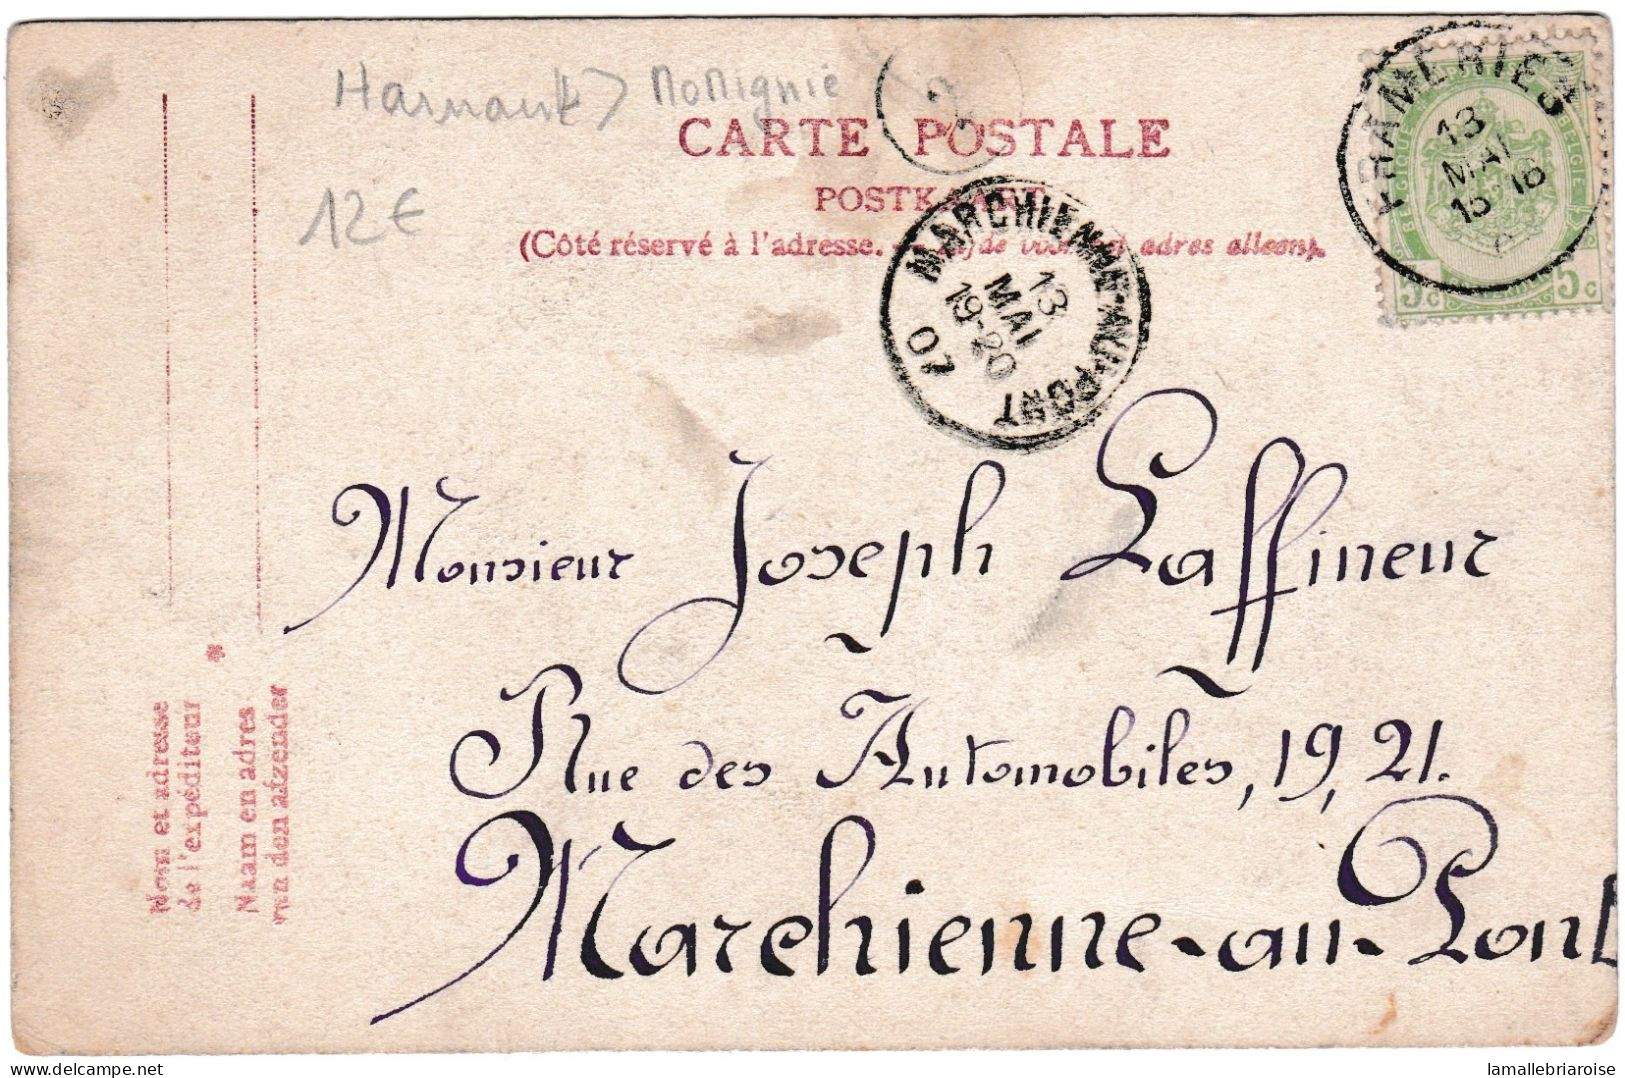 Hainaut > Momignie
CARTE POSTALE
POSTKAART
(Côté réservé à l'adresse. — Zijde voor het adres alleen).
12€
FRAMERIES
13
MAI
15 16
MARCHIENNE-AU-PONT
13
MAI
19-20
07
BELGIQUE BELGIE
5c 5c
Monsieur Joseph Laffineur
Rue des Automobiles, 19, 21.
Marchienne-au-Pont
Nom et adresse
de l'expéditeur
*
Naam en adres
van den afzender
lamallebriaroise